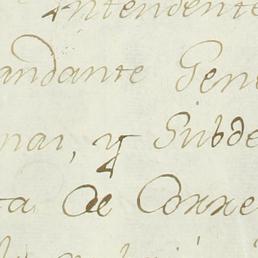 Intendente
andante Gene
nar, y Subde
ta de Corre